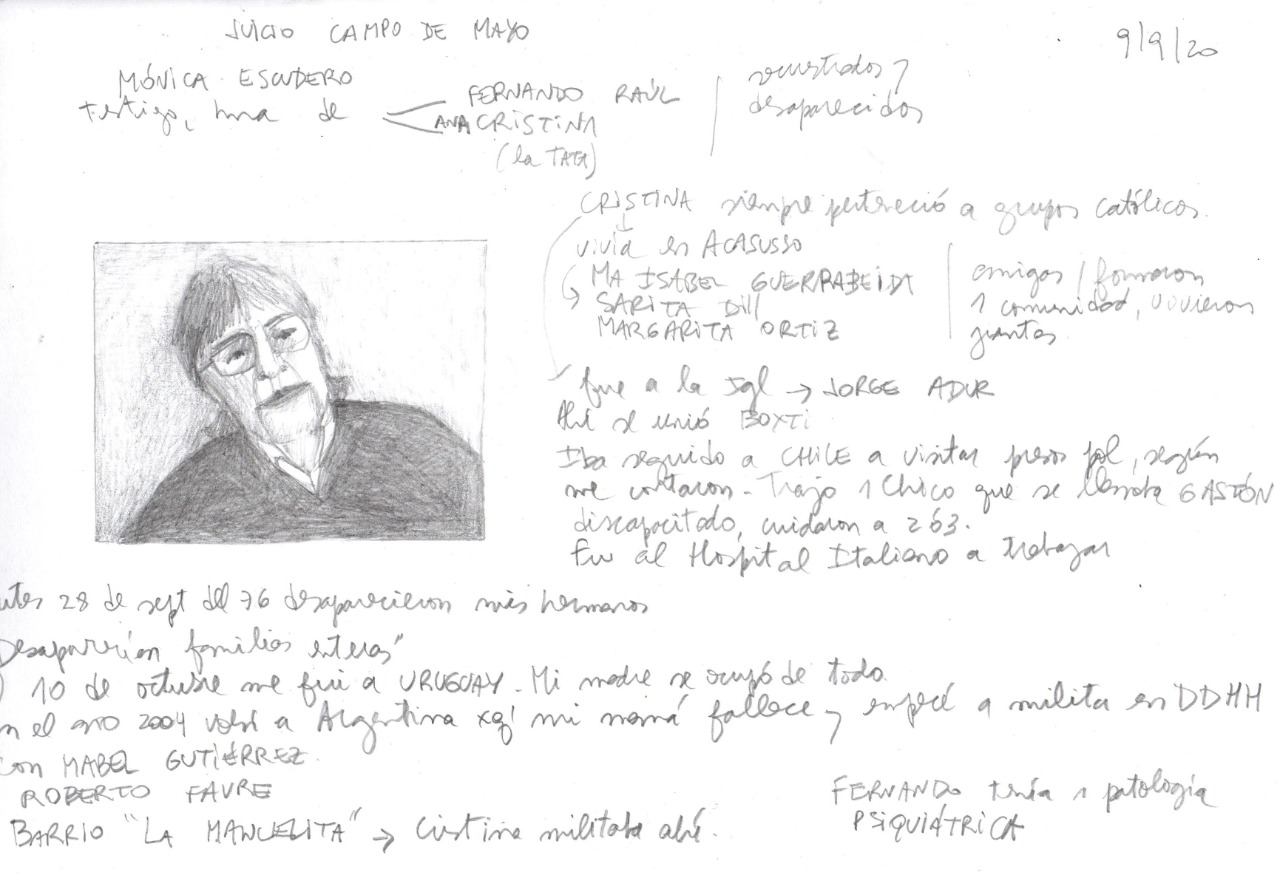 JUICIO CAMPO DE MAYO
9/9/20
MÓNICA ESCUDERO
testigo, hna de
FERNANDO RAÚL
ANA CRISTINA
(la TATA)
secuestrados y
desaparecidos
CRISTINA siempre perteneció a grupos católicos.
vivía en ACASUSSO
MA ISABEL
SARITA Dill
MARGARITA ORTIZ
amigas / formaron
1 comunidad, vivieron
juntas
fue a la Igl → JORGE ADUR
Ahí se unió
Iba seguido a CHILE a visitar presos pol, según
me contaron - Trajo 1 chico que se llamaba GASTÓN
discapacitado, cuidaron a 2 ó 3.
Fue al Hospital Italiano a trabajar
28 de sept del 76 desaparecieron mis hermanos
Desaparecían familias enteras"
10 de octubre me fui a URUGUAY. Mi madre se ocupó de todo.
n el año 2004 volví a Argentina xq' mi mamá fallece y empecé a milita en DDHH
con MABEL GUTIÉRREZ
ROBERTO FAVRE
BARRIO "LA MANUELITA" → Cristina militaba ahí.
FERNANDO tenía 1 patología
PSIQUIÁTRICA